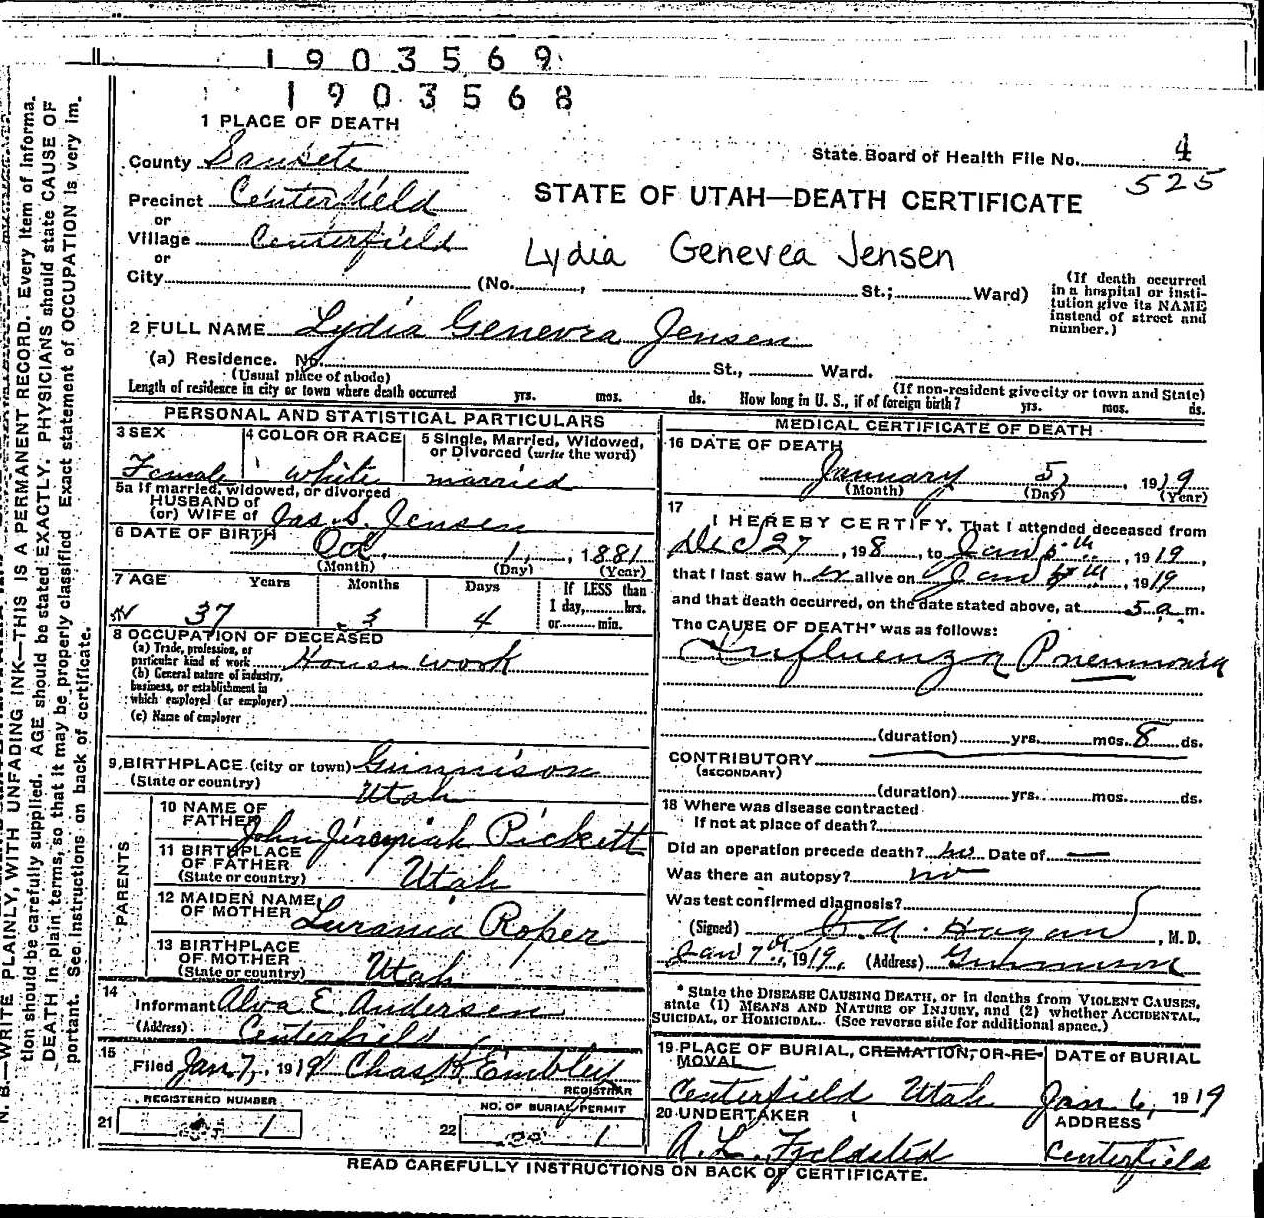 1903569
1903568
1 PLACE OF DEATH
County Sanpete
State Board of Health File No. 4
525
Precinct Centerfield
STATE OF UTAH—DEATH CERTIFICATE
or
Village Centerfield
Lydia Genevea Jensen
or
City (No. , St.; Ward)
(If death occurred in a hospital or insti-
tution give its NAME
instead of street and
number.)
2 FULL NAME Lydia Genevra Jensen
(a) Residence. No. St., Ward.
(Usual place of abode)
(If non-resident give city or town and State)
Length of residence in city or town where death occurred yrs. mos. ds. How long in U. S., if of foreign birth? yrs. mos. ds.
PERSONAL AND STATISTICAL PARTICULARS
3 SEX
Female
4 COLOR OR RACE
white
5 Single, Married, Widowed,
or Divorced (write the word)
married
5a If married, widowed, or divorced
HUSBAND of
(or) WIFE of Jas. S. Jensen
6 DATE OF BIRTH
Oct. 1, 1881
(Month) (Day) (Year)
7 AGE Years Months Days If LESS than
1 day, hrs.
or min.
37 3 4
8 OCCUPATION OF DECEASED
(a) Trade, profession, or
particular kind of work House work
(b) General nature of industry,
business, or establishment in
which employed (or employer)
(c) Name of employer
9 BIRTHPLACE (city or town) Gunnison
(State or country) Utah
PARENTS
10 NAME OF
FATHER John Jeremiah Pickett
11 BIRTHPLACE
OF FATHER
(State or country) Utah
12 MAIDEN NAME
OF MOTHER Lurania Roper
13 BIRTHPLACE
OF MOTHER
(State or country) Utah
14
Informant Alva E. Andersen
(Address) Centerfield
15
Filed Jan. 7, 1919 Chas K Embley
REGISTRAR
21 REGISTERED NUMBER 1
22 NO. OF BURIAL PERMIT 1
MEDICAL CERTIFICATE OF DEATH
16 DATE OF DEATH
January 5, 1919
(Month) (Day) (Year)
17
I HEREBY CERTIFY, That I attended deceased from
Dec 27, 198, to Jan 5th, 1919,
that I last saw her alive on Jan 5th, 1919,
and that death occurred, on the date stated above, at 5 a m.
The CAUSE OF DEATH* was as follows:
Influenza Pneumonia
(duration) yrs. mos. 8 ds.
CONTRIBUTORY
(SECONDARY)
(duration) yrs. mos. ds.
18 Where was disease contracted
If not at place of death?
Did an operation precede death? no Date of —
Was there an autopsy? no
Was test confirmed diagnosis?
(Signed) Hagan, M. D.
Jan 7th, 1919, (Address) Gunnison
* State the DISEASE CAUSING DEATH, or in deaths from VIOLENT CAUSES,
state (1) MEANS AND NATURE OF INJURY, and (2) whether ACCIDENTAL,
SUICIDAL, or HOMICIDAL. (See reverse side for additional space.)
19 PLACE OF BURIAL, CREMATION, OR RE-
MOVAL
Centerfield Utah
DATE of BURIAL
Jan 6, 1919
20 UNDERTAKER
A. L. Fjeldsted
ADDRESS
Centerfield
READ CAREFULLY INSTRUCTIONS ON BACK OF CERTIFICATE.
N. B.—WRITE PLAINLY, WITH UNFADING INK—THIS IS A PERMANENT RECORD. Every item of informa-
tion should be carefully supplied. AGE should be stated EXACTLY. PHYSICIANS should state CAUSE OF
DEATH in plain terms, so that it may be properly classified. Exact statement of OCCUPATION is very im-
portant. See instructions on back of certificate.